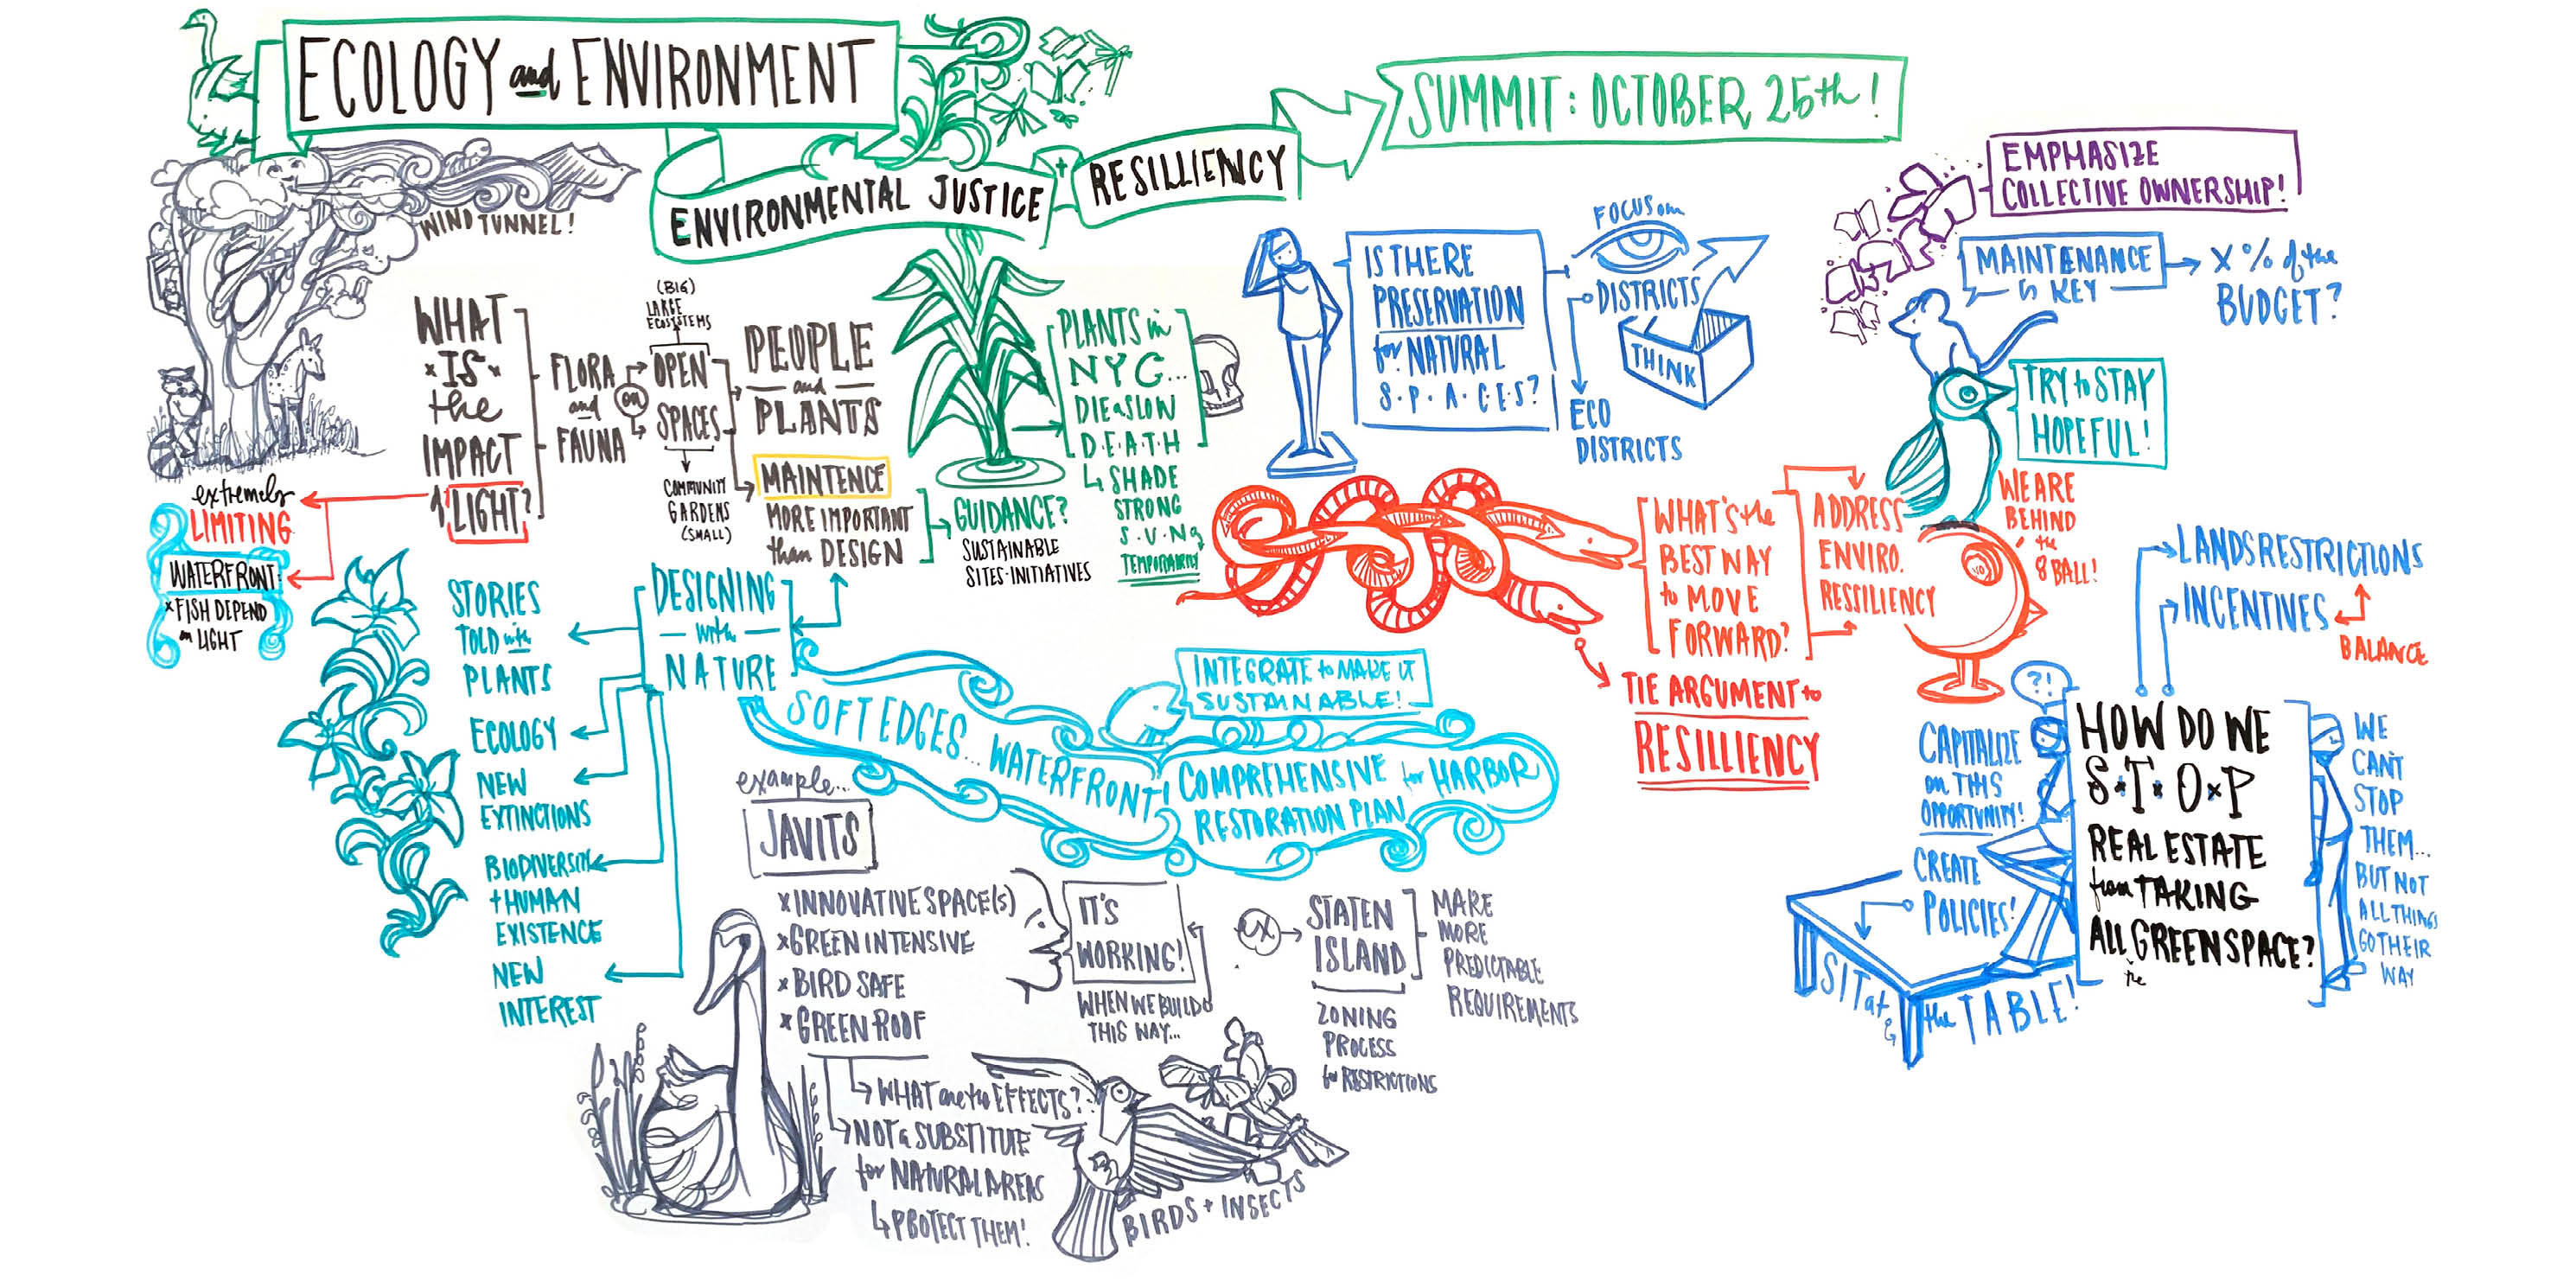 ECOLOGY and ENVIRONMENT
ENVIRONMENTAL JUSTICE
+
RESILLIENCY
SUMMIT: OCTOBER 25th!
WIND TUNNEL!
WHAT
IS
the
IMPACT
of LIGHT?
extremely
LIMITING
WATERFRONT
x FISH DEPEND
on LIGHT
FLORA
and
FAUNA
on
(BIG)
LARGE
ECOSYSTEMS
OPEN
SPACES
COMMUNITY
GARDENS
(SMALL)
PEOPLE
and
PLANTS
MAINTENCE
MORE IMPORTANT
than DESIGN
GUIDANCE?
SUSTAINABLE
SITES-INITIATIVES
PLANTS in
NYC...
DIE a SLOW
D·E·A·T·H
SHADE
STRONG
S·U·N
TEMPORARILY
DESIGNING
with
NATURE
STORIES
TOLD with
PLANTS
ECOLOGY
NEW
EXTINCTIONS
BIODIVERSITY
+ HUMAN
EXISTENCE
NEW
INTEREST
SOFT EDGES... WATERFRONT!
INTEGRATE to MAKE it
SUSTAINABLE!
COMPREHENSIVE for HARBOR
RESTORATION PLAN
example...
JAVITS
x INNOVATIVE SPACE(S)
x GREEN INTENSIVE
x BIRD SAFE
x GREEN ROOF
WHAT are the EFFECTS?
NOT a SUBSTITUTE
for NATURAL AREAS
PROTECT THEM!
BIRDS + INSECTS
IT'S
WORKING!
WHEN WE BUILD
THIS WAY...
ex
STATEN
ISLAND
ZONING
PROCESS
for RESTRICTIONS
MAKE
MORE
PREDICTABLE
REQUIREMENTS
IS THERE
PRESERVATION
for NATURAL
S·P·A·C·E·S?
FOCUS on
DISTRICTS
ECO
DISTRICTS
THINK
WHAT'S the
BEST WAY
to MOVE
FORWARD?
TIE ARGUMENT to
RESILLIENCY
ADDRESS
ENVIRO.
RESSILIENCY
WE ARE
BEHIND
the
8 BALL!
EMPHASIZE
COLLECTIVE OWNERSHIP!
MAINTENANCE
is KEY
X % of the
BUDGET?
TRY to STAY
HOPEFUL!
LANDS RESTRICTIONS
INCENTIVES
BALANCE
?!
HOW DO WE
S·T·O·P
REAL ESTATE
from TAKING
ALL the GREENSPACE?
CAPITALIZE
on THIS
OPPORTUNITY!
CREATE
POLICIES!
SIT at the TABLE!
WE
CAN'T
STOP
THEM...
BUT NOT
ALL THINGS
GO THEIR
WAY